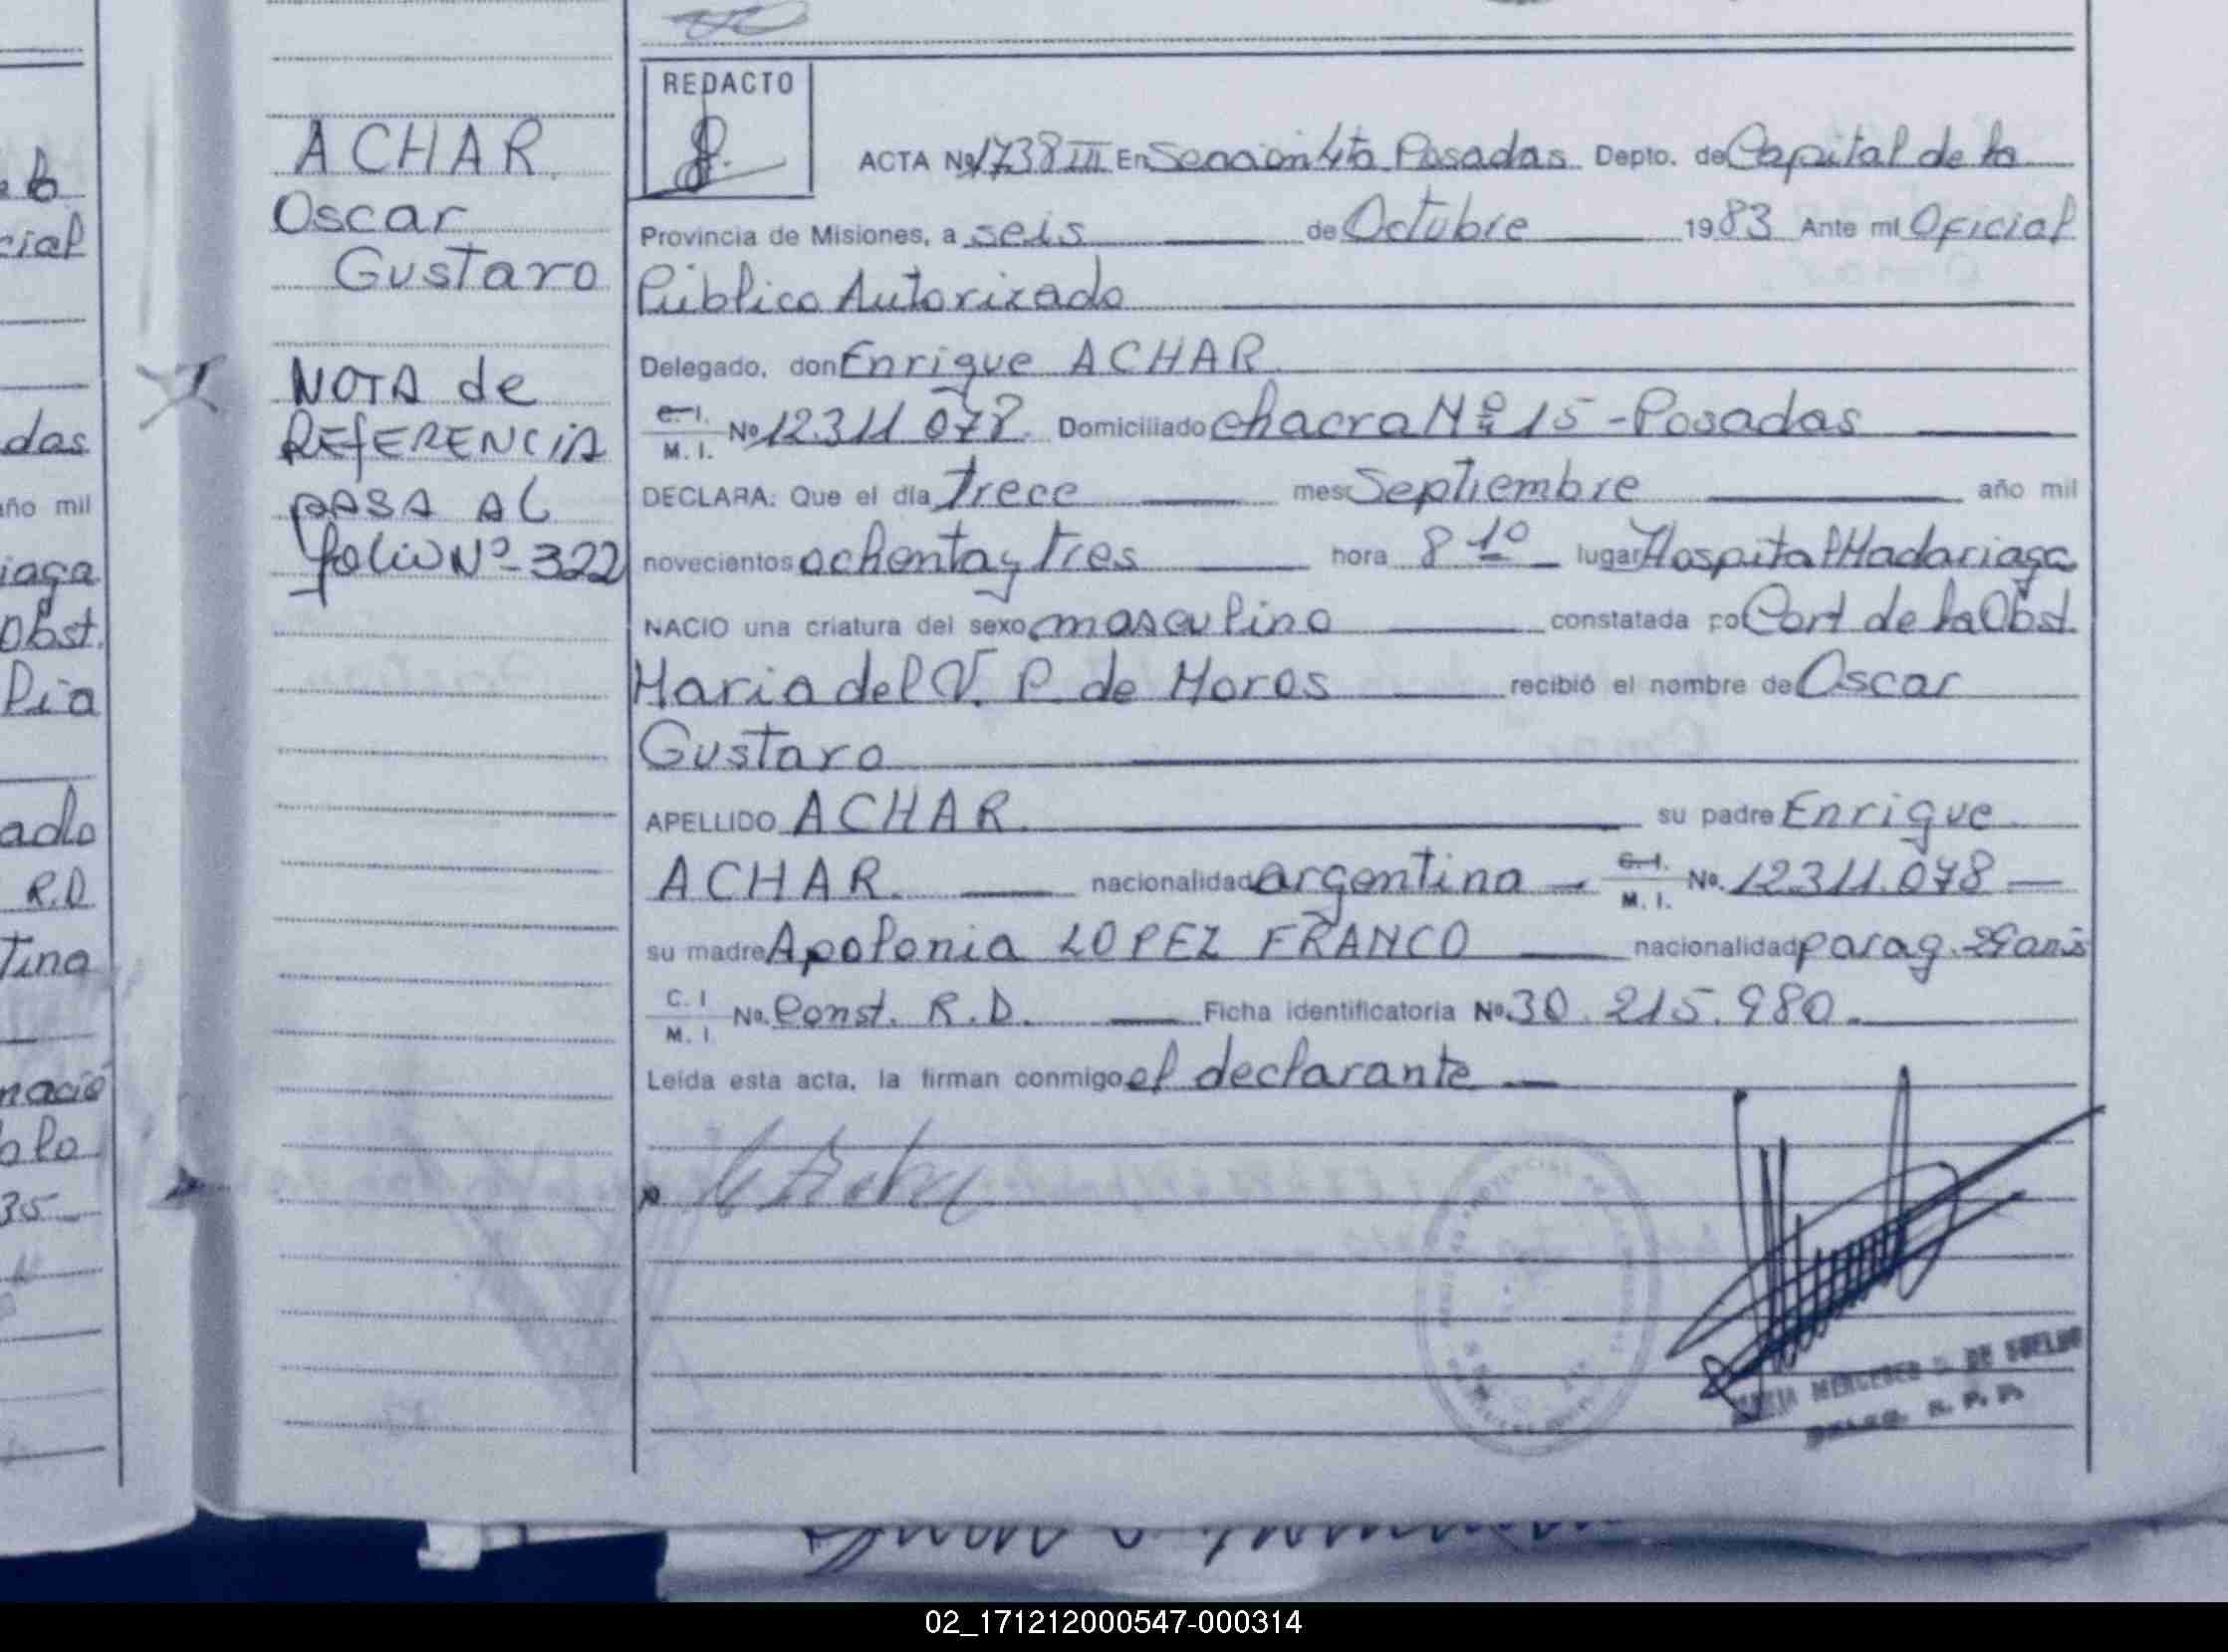 ACHAR
Oscar
Gustavo
NOTA de
REFERENCIA
PASA AL
folio Nº 322
REDACTO
ACTA Nº 1738 III En Sección 4ta Posadas Depto. de Capital de la
Provincia de Misiones, a seis de Octubre 1983 Ante mi Oficial
Público Autorizado
Delegado, don Enrique ACHAR
C. I.
M. I. Nº 12311.078. Domiciliado chacra Nº 15 - Posadas
DECLARA: Que el día trece mes Septiembre año mil
novecientos ochenta y tres hora 8 10 lugar Hospital Madariaga
NACIO una criatura del sexo masculino constatada po Cert de la Obst.
Maria del V. P. de Moros recibió el nombre de Oscar
Gustavo
APELLIDO ACHAR su padre Enrique
ACHAR. nacionalidad argentina C. I.
M. I. No. 12311.078
su madre Apolonia LOPEZ FRANCO nacionalidad parag.
C. I
M. I. No. Const. R.D. Ficha identificatoria Nº 30.215.980.
Leída esta acta, la firman conmigo el declarante
DE SUELDO
das
ño mil
iaga
Obst.
lia
ado
R.D
tina
nació
35
02_171212000547-000314